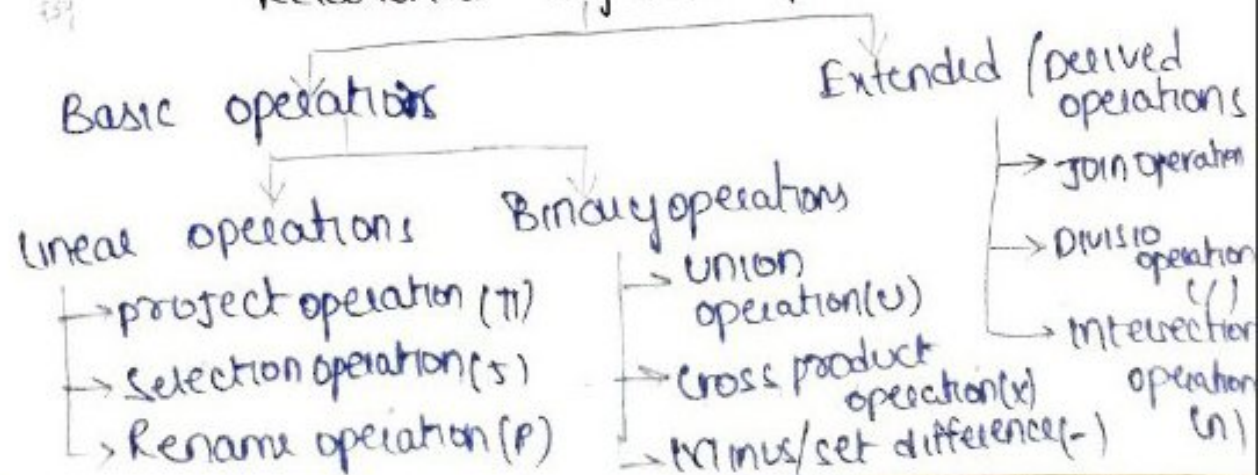 Basic operations
Extended / Derived
operations
Linear operations
Binary operations
→ project operation (π)
→ Selection operation (σ)
→ Rename operation (ρ)
→ union
operation (∪)
→ cross product
operation (x)
→ Minus/set difference (-)
→ Join operation
→ Divisio
operation
(/)
→ intersection
operation
(∩)